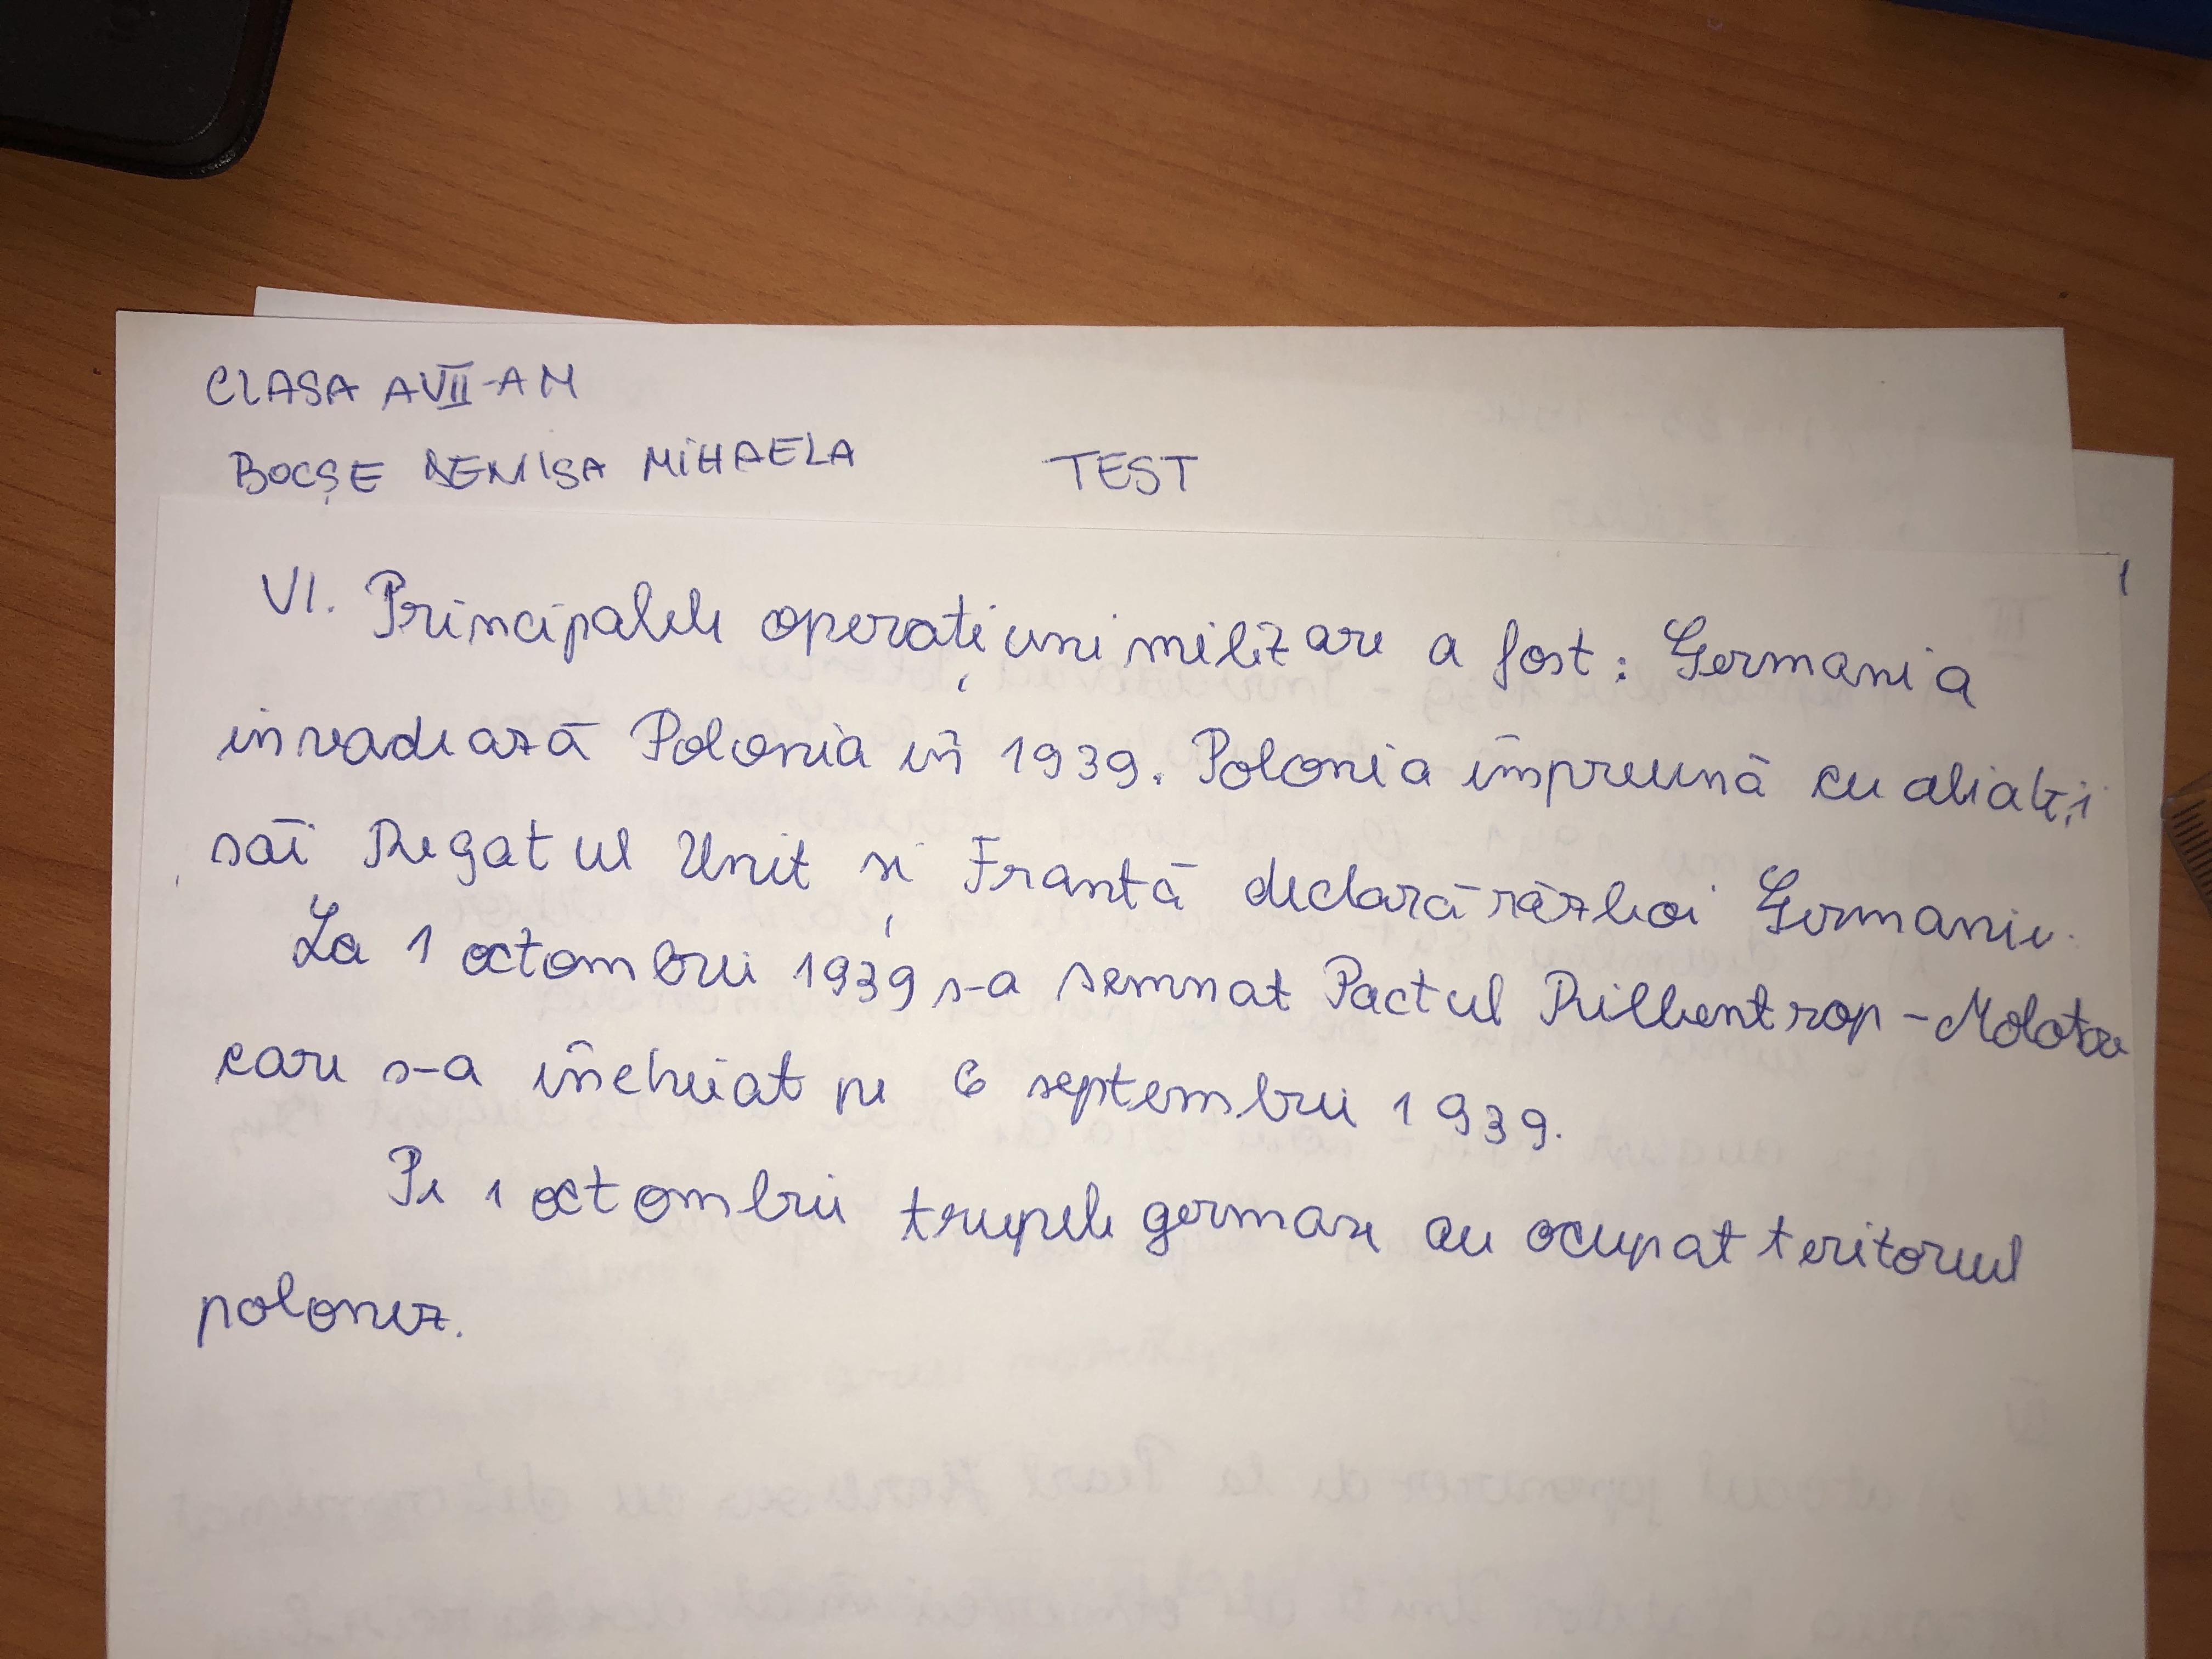 CLASA A VII-A M
BOCȘE DENISA MIHAELA TEST
VI. Principalele operațiuni militare a fost: Germania
invadează Polonia în 1939. Polonia împreună cu aliați
săi Regatul Unit și Franță declară război Germanie.
La 1 octombrie 1939 s-a semnat Pactul Rilbentrop-Molotov
care s-a încheiat pe 6 septembrie 1939.
Pe 1 octombrie trupele germane au ocupat teritoriul
polonez.